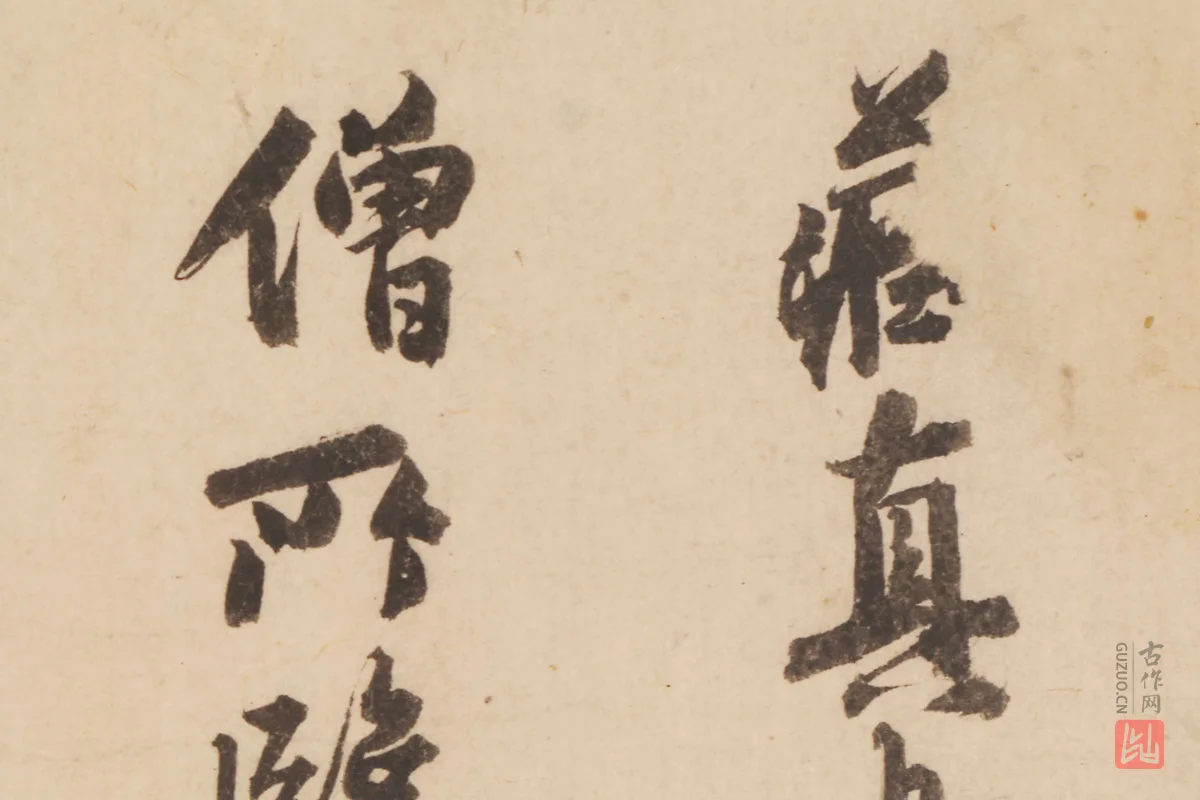 莊真
僧所臨
古作网
GUZUO.CN